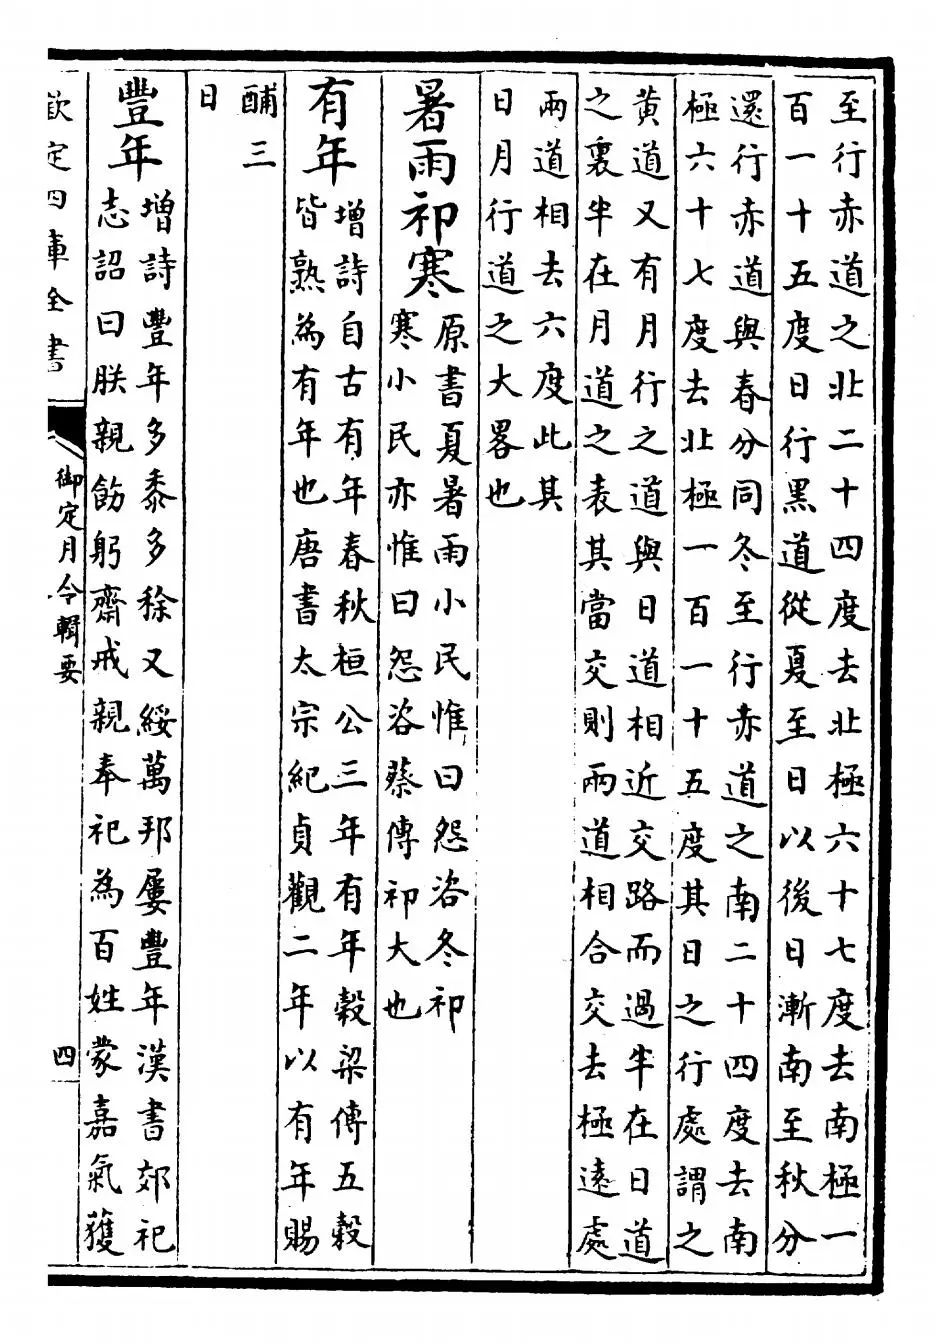 至行赤道之北二十四度去北極六十七度去南極一
百一十五度日行黑道從夏至日以後日漸南至秋分
還行赤道與春分同冬至行赤道之南二十四度去南
極六十七度去北極一百一十五度其日之行處謂之
黄道又有月行之道與日道相近交路而過半在日道
之裏半在月道之表其當交則兩道相合交去極遠處
兩道相去六度此其
日月行道之大畧也
暑雨祁寒
原書夏暑雨小民惟曰怨咨冬祁
寒小民亦惟曰怨咨蔡傳祁大也
有年
增詩自古有年春秋桓公三年有年穀梁傳五穀
皆熟為有年也唐書太宗紀貞觀二年以有年賜
酺三
日
豐年
增詩豐年多黍多稌又綏萬邦屢豐年漢書郊祀
志詔曰朕親飭躬齋戒親奉祀為百姓蒙嘉氣獲
欽定四庫全書
御定月令輯要
四